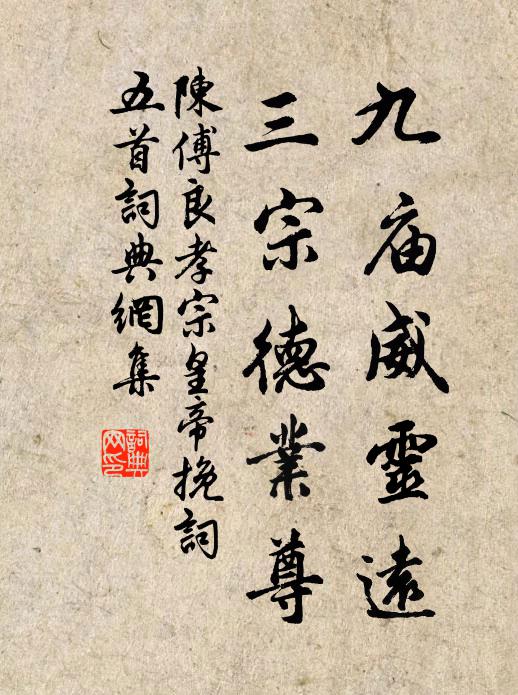 九庙威靈遠
三宗德業尊
陳傅良孝宗皇帝挽詞
五首詞典網集
詞典
网印